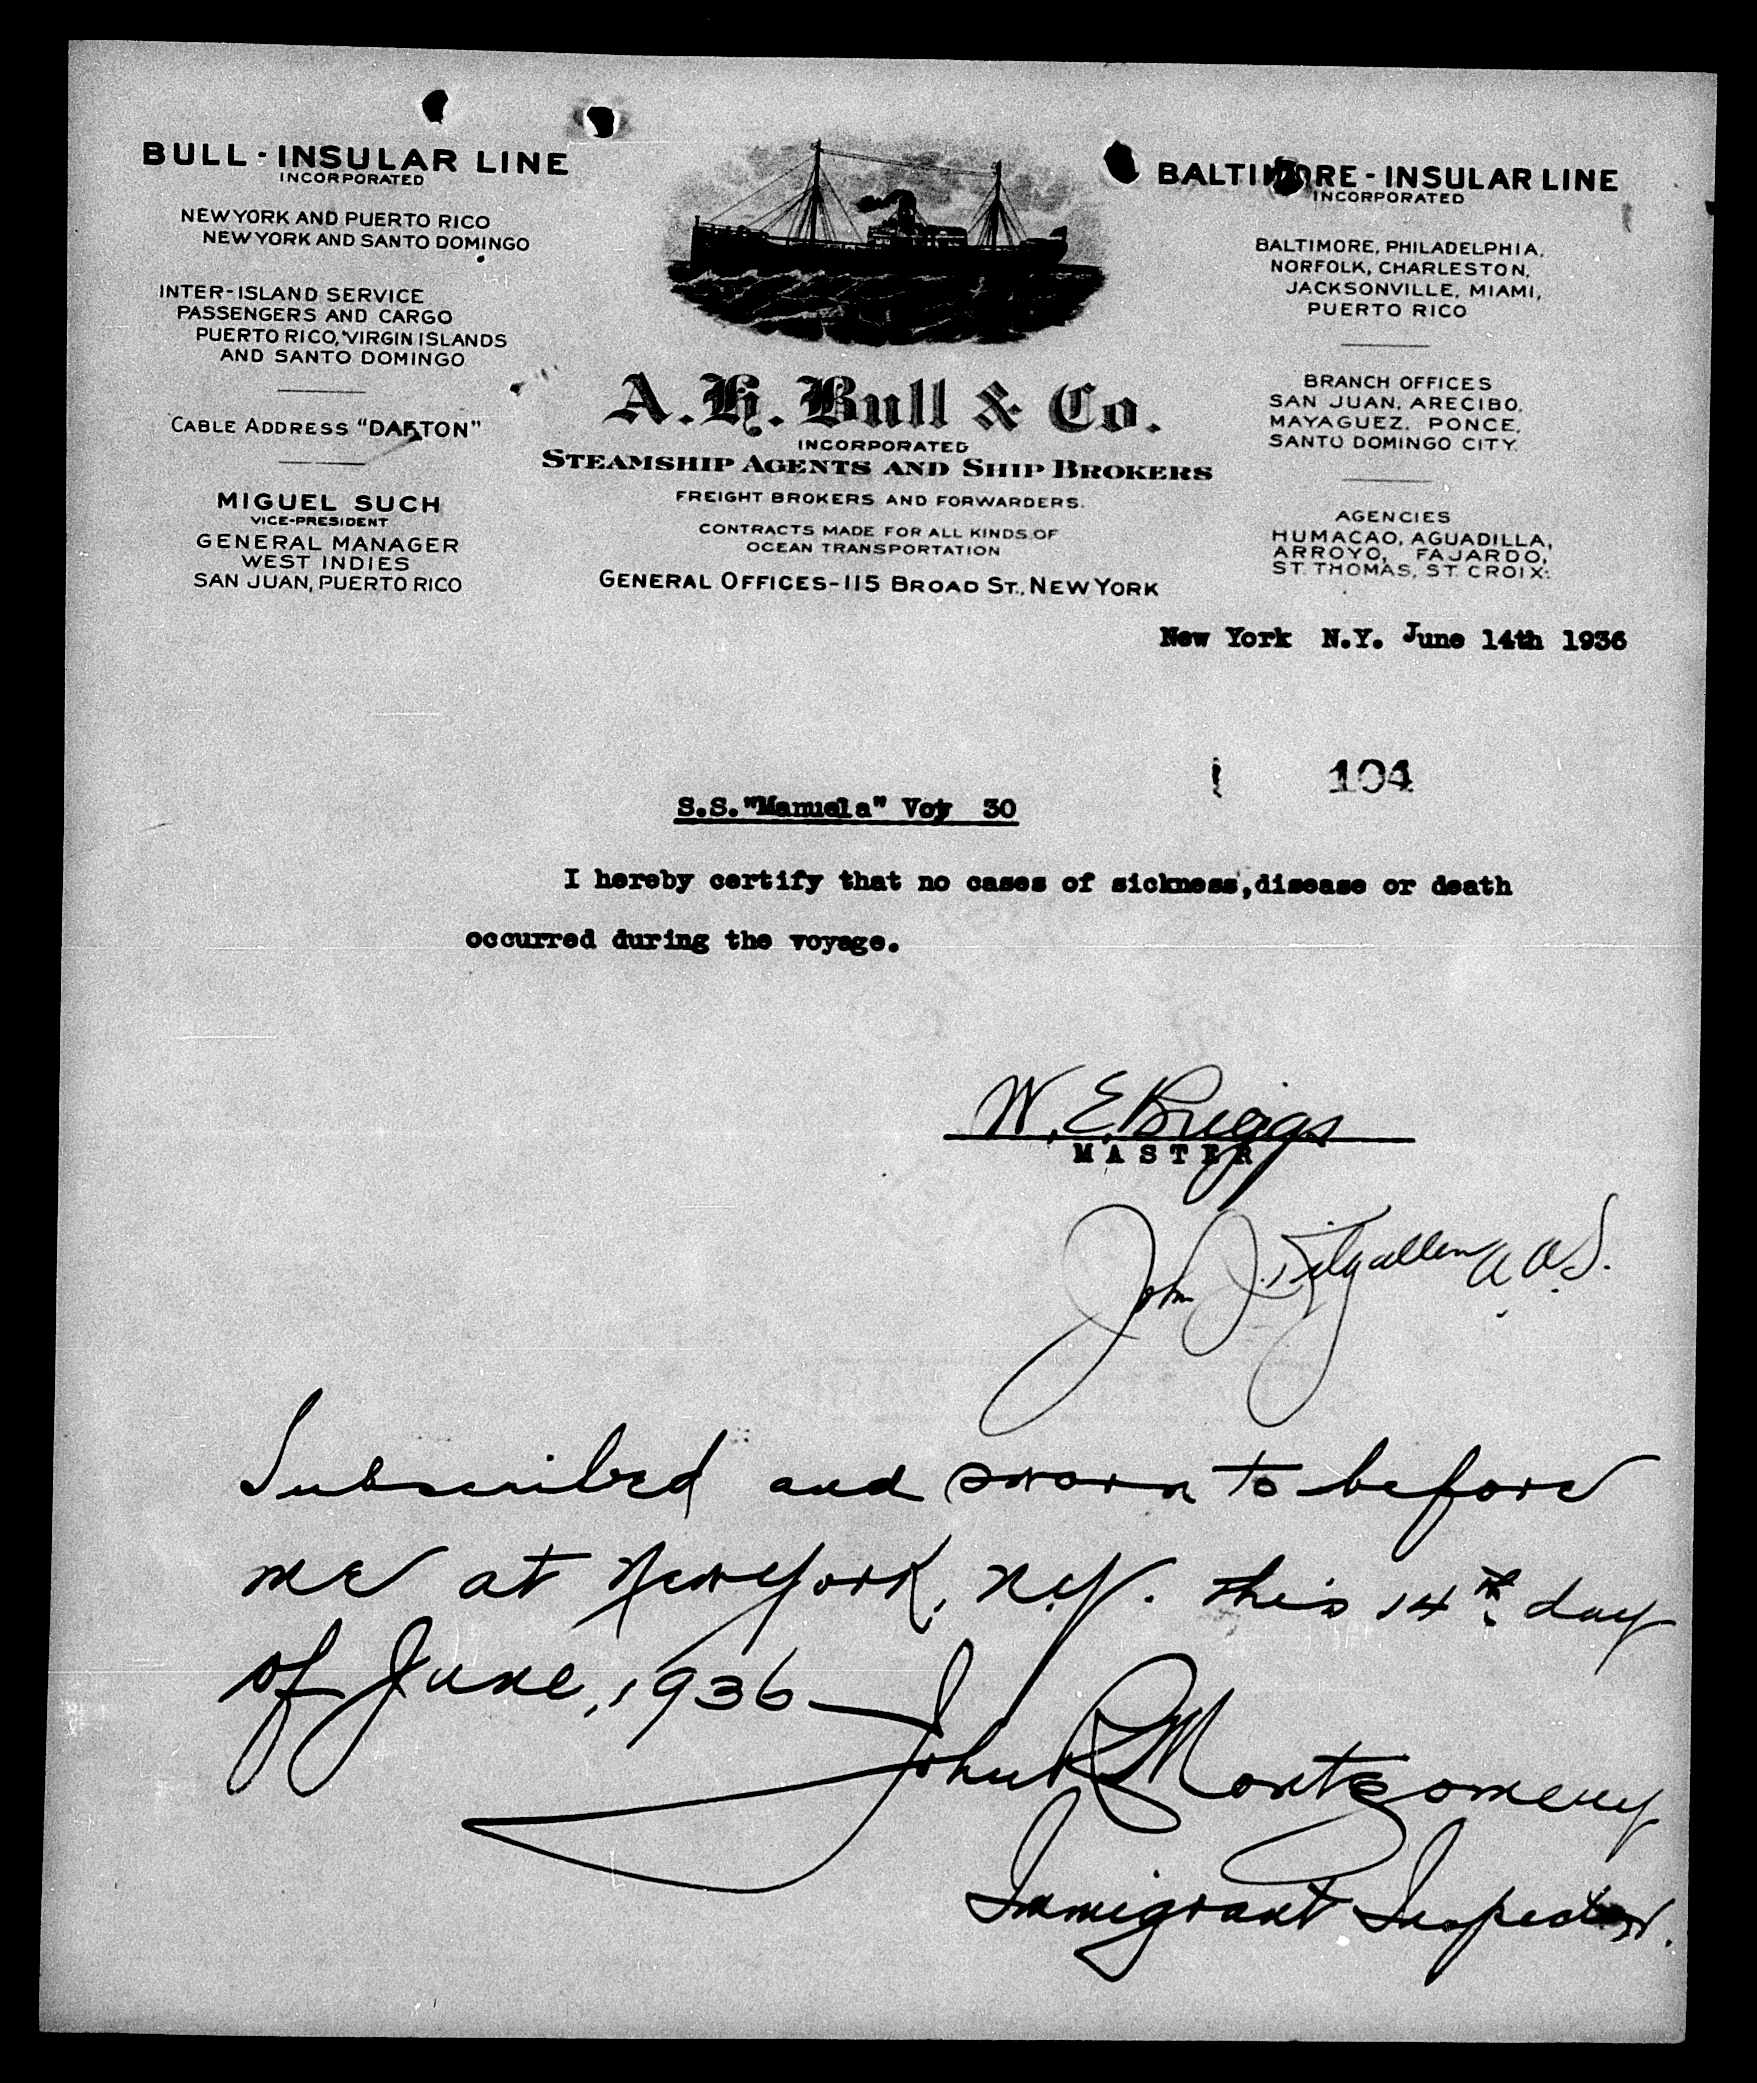 BULL - INSULAR LINE
INCORPORATED
NEW YORK AND PUERTO RICO
NEW YORK AND SANTO DOMINGO
INTER-ISLAND SERVICE
PASSENGERS AND CARGO
PUERTO RICO, VIRGIN ISLANDS
AND SANTO DOMINGO
CABLE ADDRESS "DAFTON"
MIGUEL SUCH
VICE-PRESIDENT
GENERAL MANAGER
WEST INDIES
SAN JUAN, PUERTO RICO
A.H. Bull & Co.
INCORPORATED
STEAMSHIP AGENTS AND SHIP BROKERS
FREIGHT BROKERS AND FORWARDERS.
CONTRACTS MADE FOR ALL KINDS OF
OCEAN TRANSPORTATION
GENERAL OFFICES-115 BROAD ST., NEW YORK
BALTIMORE - INSULAR LINE
INCORPORATED
BALTIMORE, PHILADELPHIA,
NORFOLK, CHARLESTON,
JACKSONVILLE, MIAMI,
PUERTO RICO
BRANCH OFFICES
SAN JUAN, ARECIBO,
MAYAGUEZ, PONCE,
SANTO DOMINGO CITY.
AGENCIES
HUMACAO, AGUADILLA,
ARROYO, FAJARDO,
ST. THOMAS, ST. CROIX.
New York N.Y. June 14th 1936
104
S.S."Manuela" Voy 30
I hereby certify that no cases of sickness,disease or death
occurred during the voyage.
W. E. Briggs
MASTER
John J. Kilgallen
Subscribed and sworn to before
me at New York, N.Y. this 14th day
of June, 1936
John R Montgomery
Immigrant Inspector.